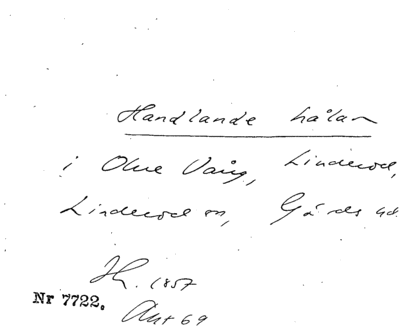 Handlande hålan
i Olne Vång, Linderöd,
Linderöd sn, Gärds hd.
Jh. 1857
Nr 7722.
Ant 69